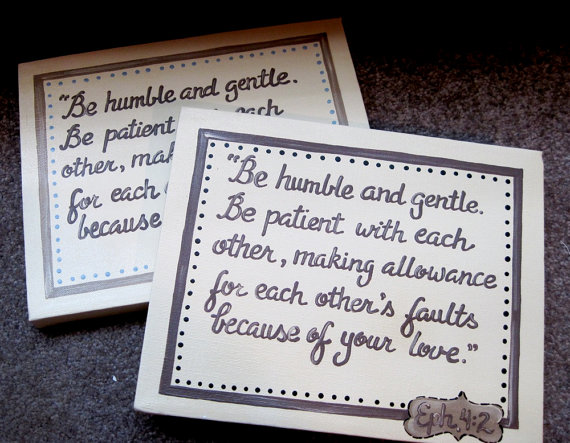 "Be humble and gentle.
Be patient with each
other, mak
for each
because
"Be humble and gentle.
Be patient with each
other, making allowance
for each other's faults
because of your love."
Eph. 4:2